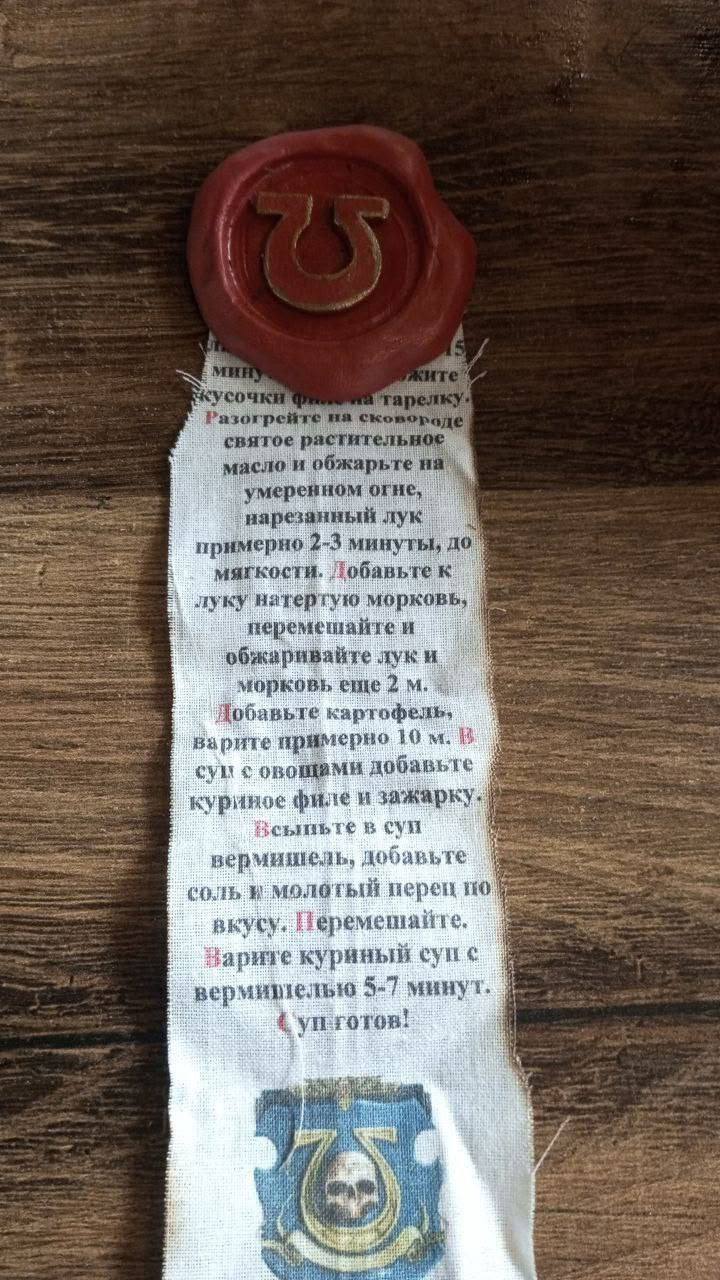 15
кусочки филе на тарелку.
Разогрейте на сковороде
святое растительное
масло и обжарьте на
умеренном огне,
нарезанный лук
примерно 2-3 минуты, до
мягкости. Добавьте к
луку натертую морковь,
перемешайте и
обжаривайте лук и
морковь еще 2 м.
Добавьте картофель,
варите примерно 10 м. В
суп с овощами добавьте
куриное филе и зажарку.
Всыпьте в суп
вермишель, добавьте
соль и молотый перец по
вкусу. Перемешайте.
Варите куриный суп с
вермишелью 5-7 минут.
Суп готов!